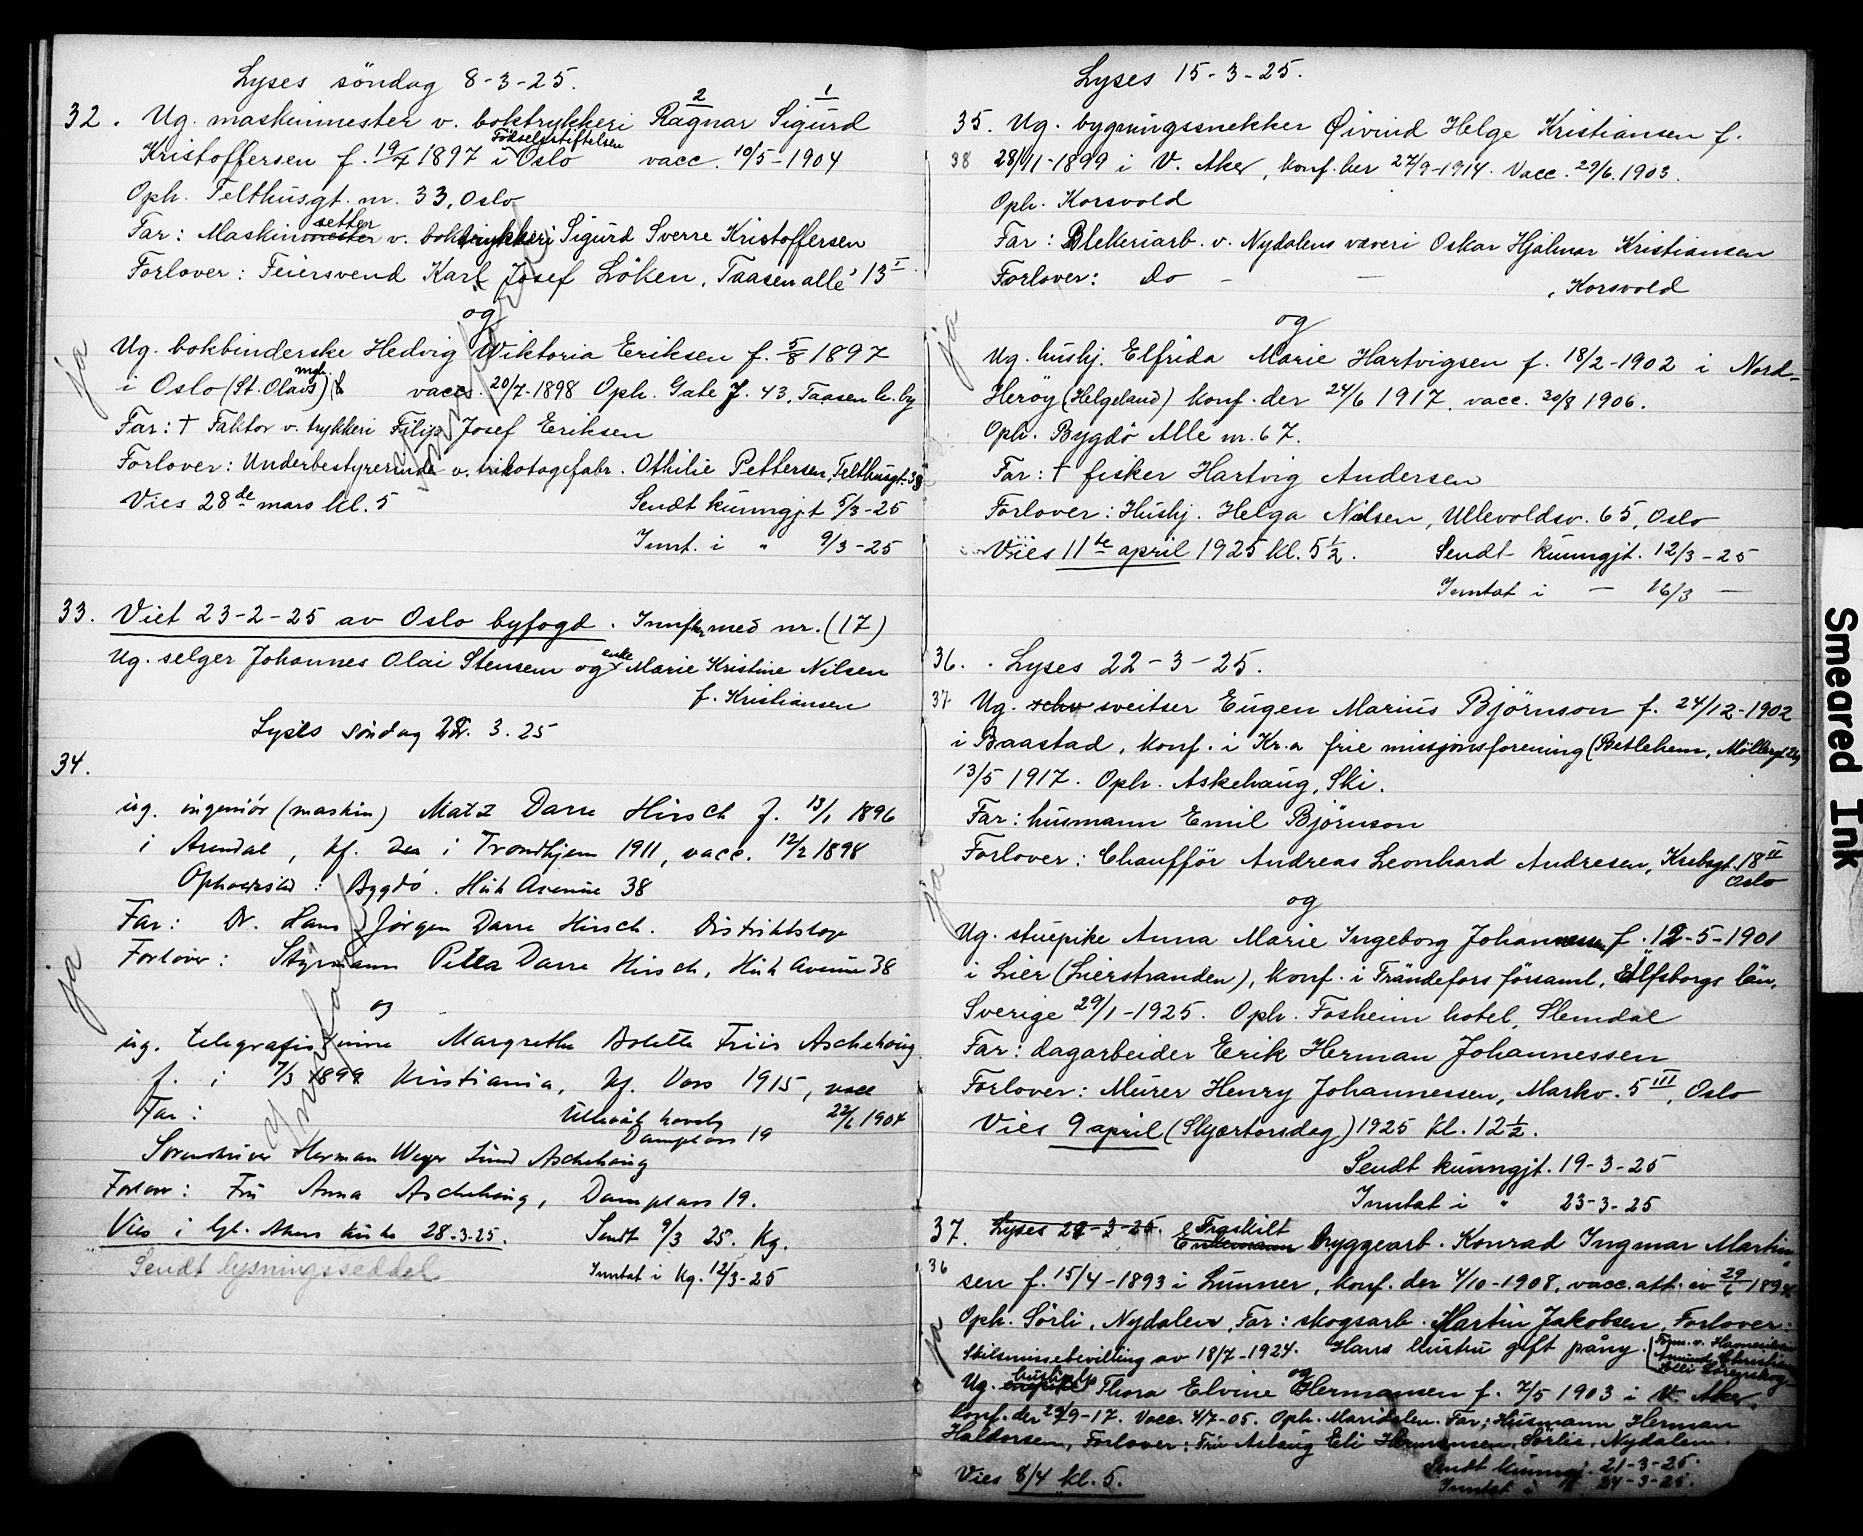 Lyses söndag 8-3-25.
2 1
32. Ug. maskinmester v. boktrykkeri Ragnar Sigurd
Födselsstiftelsen
Kristoffersen f. 19/7 1897 i Oslo vacc. 10/5-1904
Oph. Telthusgt. nr. 33, Oslo
setter
Far: Maskinmester v. boktrykkeri Sigurd Sverre Kristoffersen
Forlover: Feiersvend Karl Josef Löken, Taasen allé 13 I
og
Ug. bokbinderske Hedvig Wiktoria Eriksen f. 5/8 1897
ja
mgh.
i Oslo (St. Olavs) vacc. 20/7-1898 Oph. Gate J. 43, Taasen h. by
Far: † Faktor v. trykkeri Filip Josef Eriksen
Forlover: Underbestyrerinde v. trikotagefabr. Othilie Pettersen, Telthusgt. 33
Vies 28de mars kl. 5 Sendt kunngjt 5/3-25
Innt. i " 9/3-25
33. Viet 23-2-25 av Oslo byfogd. Innf. med nr. (17)
enke
Ug. selger Johannes Olai Stensem og Marie Kristine Nilsen
f. Kristiansen
Lyses söndag 3. 25
34.
ug. ingeniör (maskin) Matz Darre Hirsch f. 13/1 1896
i Arendal, kf. i Trondhjem 1911, vacc. 12/2 1898
Opholdssted: Bygdö. Huk Avenue 38
Far: Dr. Hans Jörgen Darre Hirsch. Distriktslæge
Forlover: Styrmann Petter Darre Hirsch, Huk Avenue 38
ja
og
ug. telegrafistinne Margrethe Bolette Friis Aschehoug
f. i 7/3 1899 Kristiania, kf. Voss 1915, vacc
22/6 1904
Far: Ullevål haveby
Damplass 19
Sorenskriver Herman Weyer Lund Aschehoug
Forlover: Fru Anna Aschehoug, Damplass 19.
Vies i Gl. Akers kirke 28-3-25. Sendt 9/3 25. Kg.
Sendt lysningsseddel Inntat i Kg. 12/3-25
Lyses 15-3-25.
35. Ug. bygningssnekker Öivind Helge Kristiansen f.
38 28/11-1899 i V. Aker, konf. her 27/9-1914. Vacc. 29/6. 1903.
Oph. Korsvold
Far: Blekeriarb. v. Nydalens væveri Oskar Hjalmar Kristiansen
Forlover: Do - — , Korsvold
og
ja
Ug. hushj. Elfrida Marie Hartvigsen f. 18/2-1902 i Nord-
Heröy (Helgeland) konf. der 24/6 1917, vacc. 30/8 1906.
Oph. Bygdö Allé nr. 67.
Far: † fisker Hartvig Andersen
Forlover: Hushj. Helga Nilsen, Ullevoldsv. 65, Oslo
Vies 11te april 1925 kl. 5 1/2. Sendt kunngjt. 12/3-25
Inntat i — 16/3 —
36. Lyses 22-3-25.
37 Ug. sveitser Eugen Marius Björnson f. 24/12-1902
i Baastad, konf. i Kr.a frie missjonsforening (Betlehem, Möllergt.
13/5 1917. Oph. Askehaug, Ski.
Far: husmann Emil Björnson
Forlover: Chaufför Andreas Leonhard Andresen, Krebsgt. 18 II
Oslo
ja
og
Ug. stuepike Anna Marie Ingeborg Johannessen f. 12-5-1901
i Lier (Lierstranden), konf. i Frändefors församl, Elfsborgs län,
Sverige 29/1-1925. Oph. Fosheim hotel, Slemdal
Far: dagarbeider Erik Herman Johannessen
Forlover: Murer Henry Johannessen, Markv. 5 III, Oslo
Vies 9 april (Skjærtorsdag) 1925 kl. 12 1/2.
Sendt kunngjt. 19-3-25
Inntat i " 23-3-25
37. Lyses 22-3-25. Fraskilt
Enkemann bryggearb. Konrad Ingmar Martin-
36
sen f. 15/4-1893 i Lunner, konf. der 4/10-1908, vacc. att. av 29/6 1894
Oph. Sörli, Nydalen, Far: skogsarb. Martin Jakobsen, Forlover:
ja
Skilsmissebevilling av 18/7-1924. Hans hustru gift påny.
og
hushjelp
Ug. Thora Elvine Hermansen f. 7/5 1903 i V. Aker.
konf. der 29/9-17. Vacc. 4/7-05. Oph. Maridalen. Far: Husmann Herman
Haldorsen, Forlover: Fru Aslaug Eli Hermansen, Sörlie, Nydalen.
Vies 8/4 kl. 5. Sendt kunngj. 21-3-25.
Inntat i " 24-3-25.
Smeared Ink